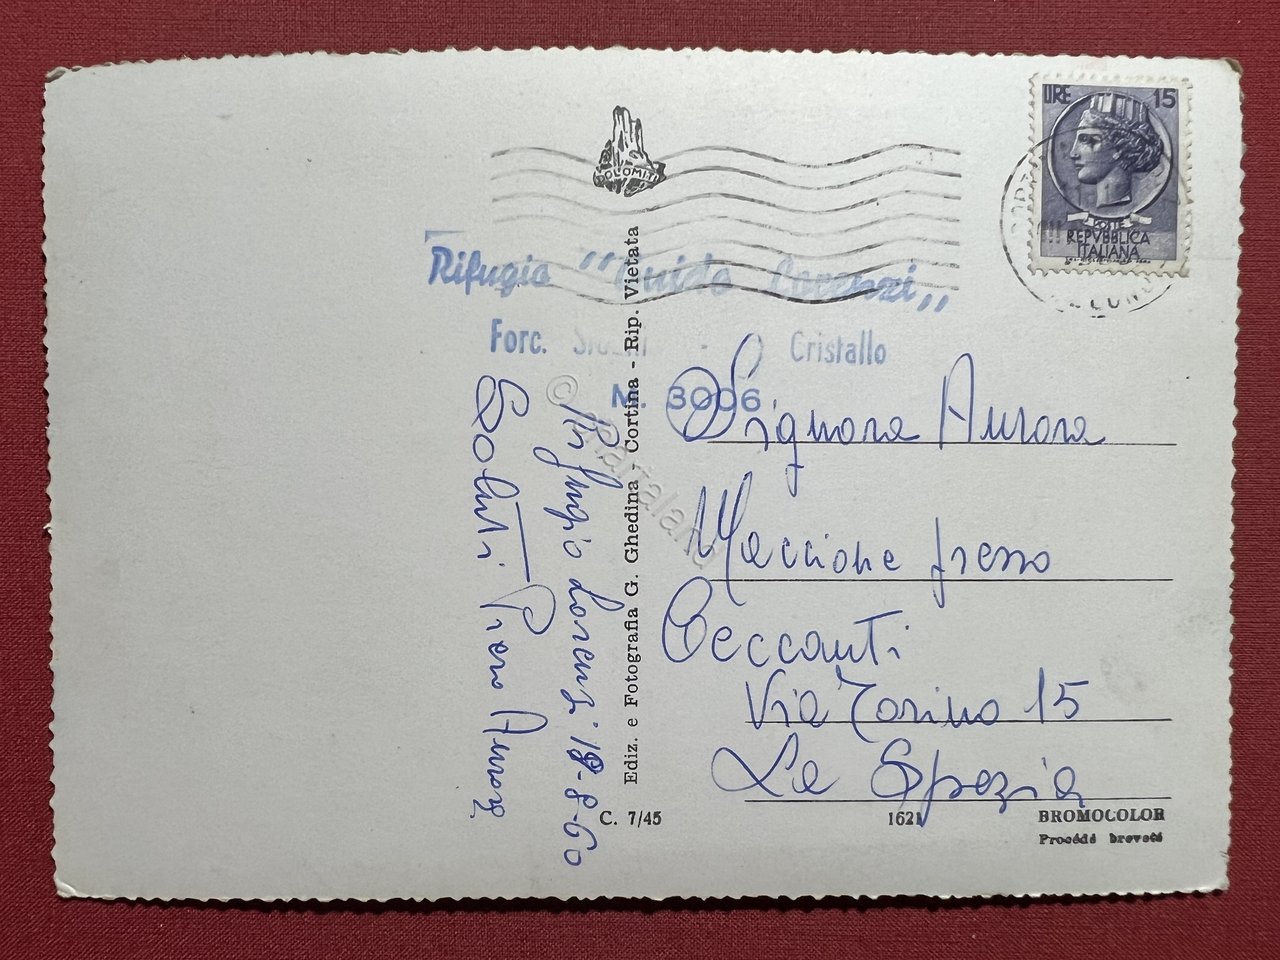 LIRE 15
POSTE
REPVBBLICA
ITALIANA
DOLOMITI
Rifugio "Guido Lorenzi"
Forc. - Cristallo
M. 3006
Rifugio Lorenzi 18-8-60
Saluti Piero
Ediz. e Fotografia G. Ghedina - Cortina - Rip. Vietata
Signora Aurora
Maccione presso
Ceccanti
Via Torino 15
La Spezia
C. 7/45
1621
BROMOCOLOR
Procédé breveté
© Martaland